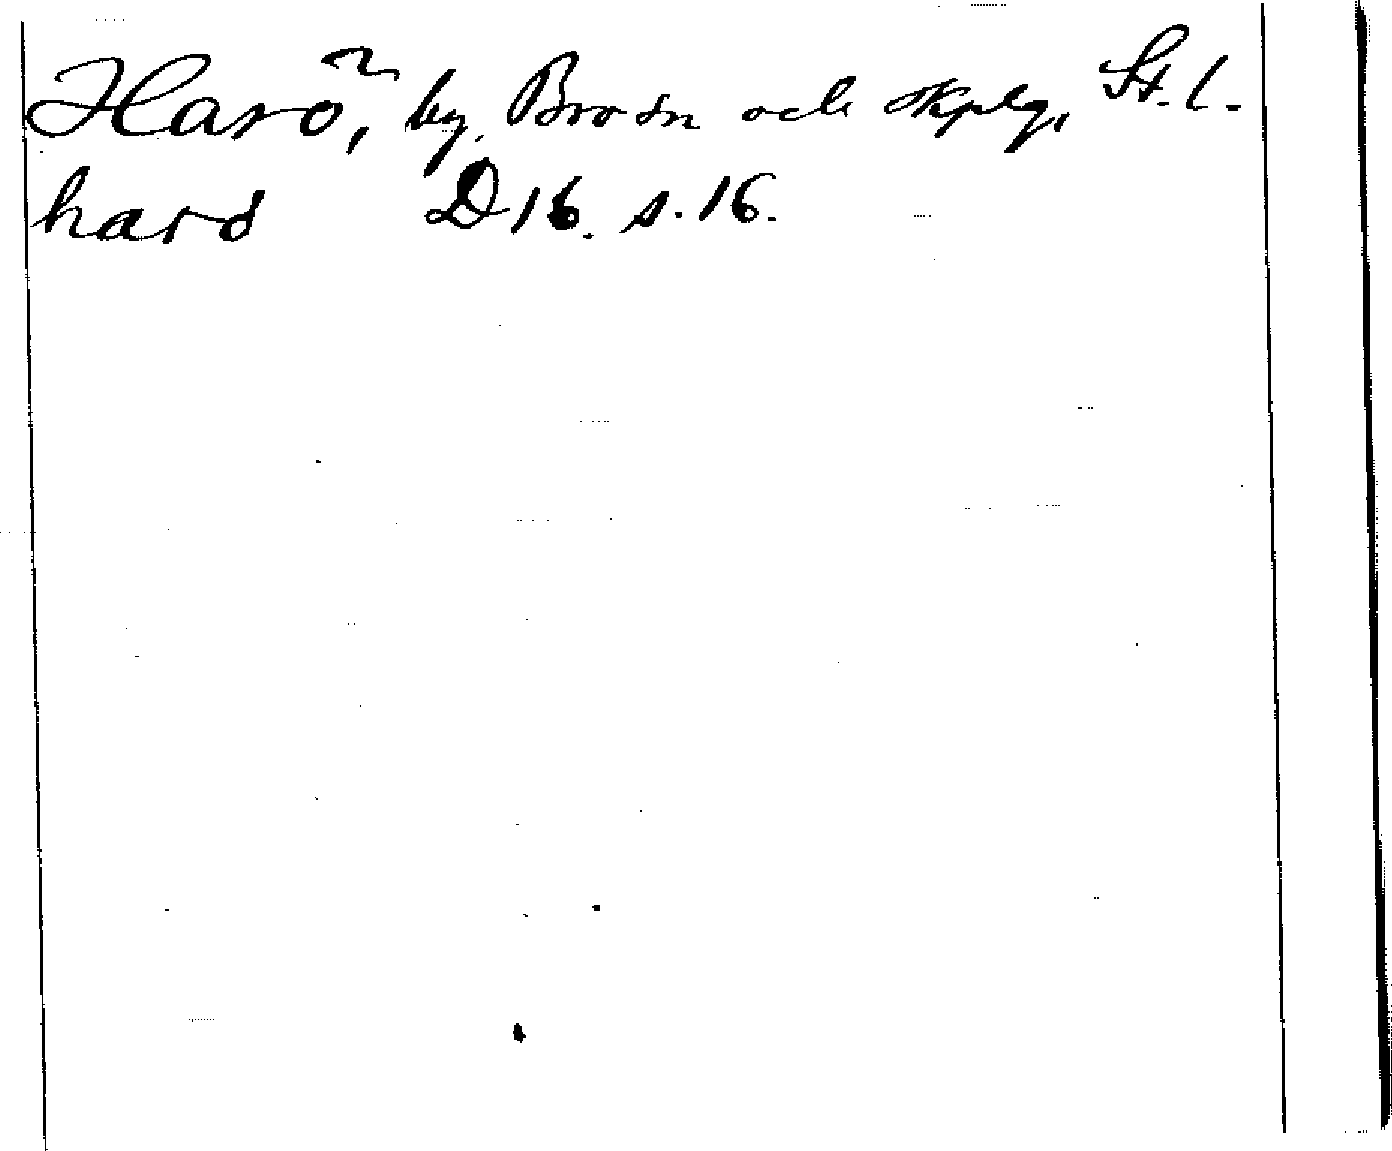 Harö, by, Bro sn och skplg, St. l.
harö D 16. s. 16.